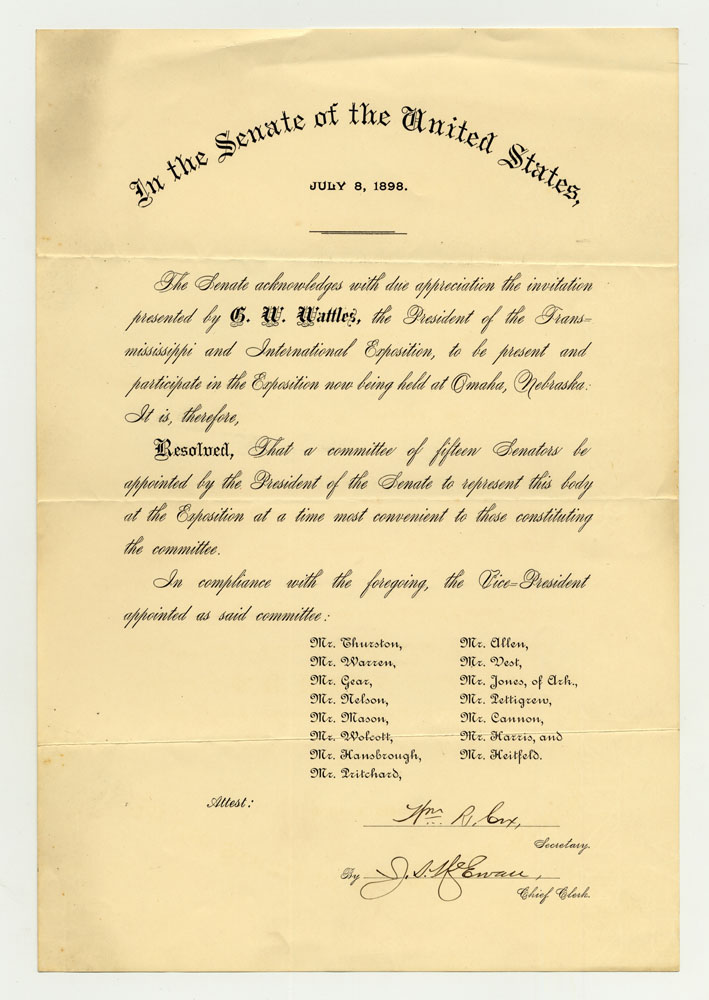 In the Senate of the United States,
JULY 8, 1898.
The Senate acknowledges with due appreciation the invitation
presented by G. W. Wattles, the President of the Trans=
mississippi and International Exposition, to be present and
participate in the Exposition now being held at Omaha, Nebraska:
It is, therefore,
Resolved, That a committee of fifteen Senators be
appointed by the President of the Senate to represent this body
at the Exposition at a time most convenient to those constituting
the committee.
In compliance with the foregoing, the Vice=President
appointed as said committee:
Mr. Thurston,
Mr. Warren,
Mr. Gear,
Mr. Nelson,
Mr. Mason,
Mr. Wolcott,
Mr. Hansbrough,
Mr. Pritchard,
Mr. Allen,
Mr. Vest,
Mr. Jones, of Ark.,
Mr. Pettigrew,
Mr. Cannon,
Mr. Harris, and
Mr. Heitfeld.
Attest:
Wm R. Cox,
Secretary.
By J. S. McEwan,
Chief Clerk.